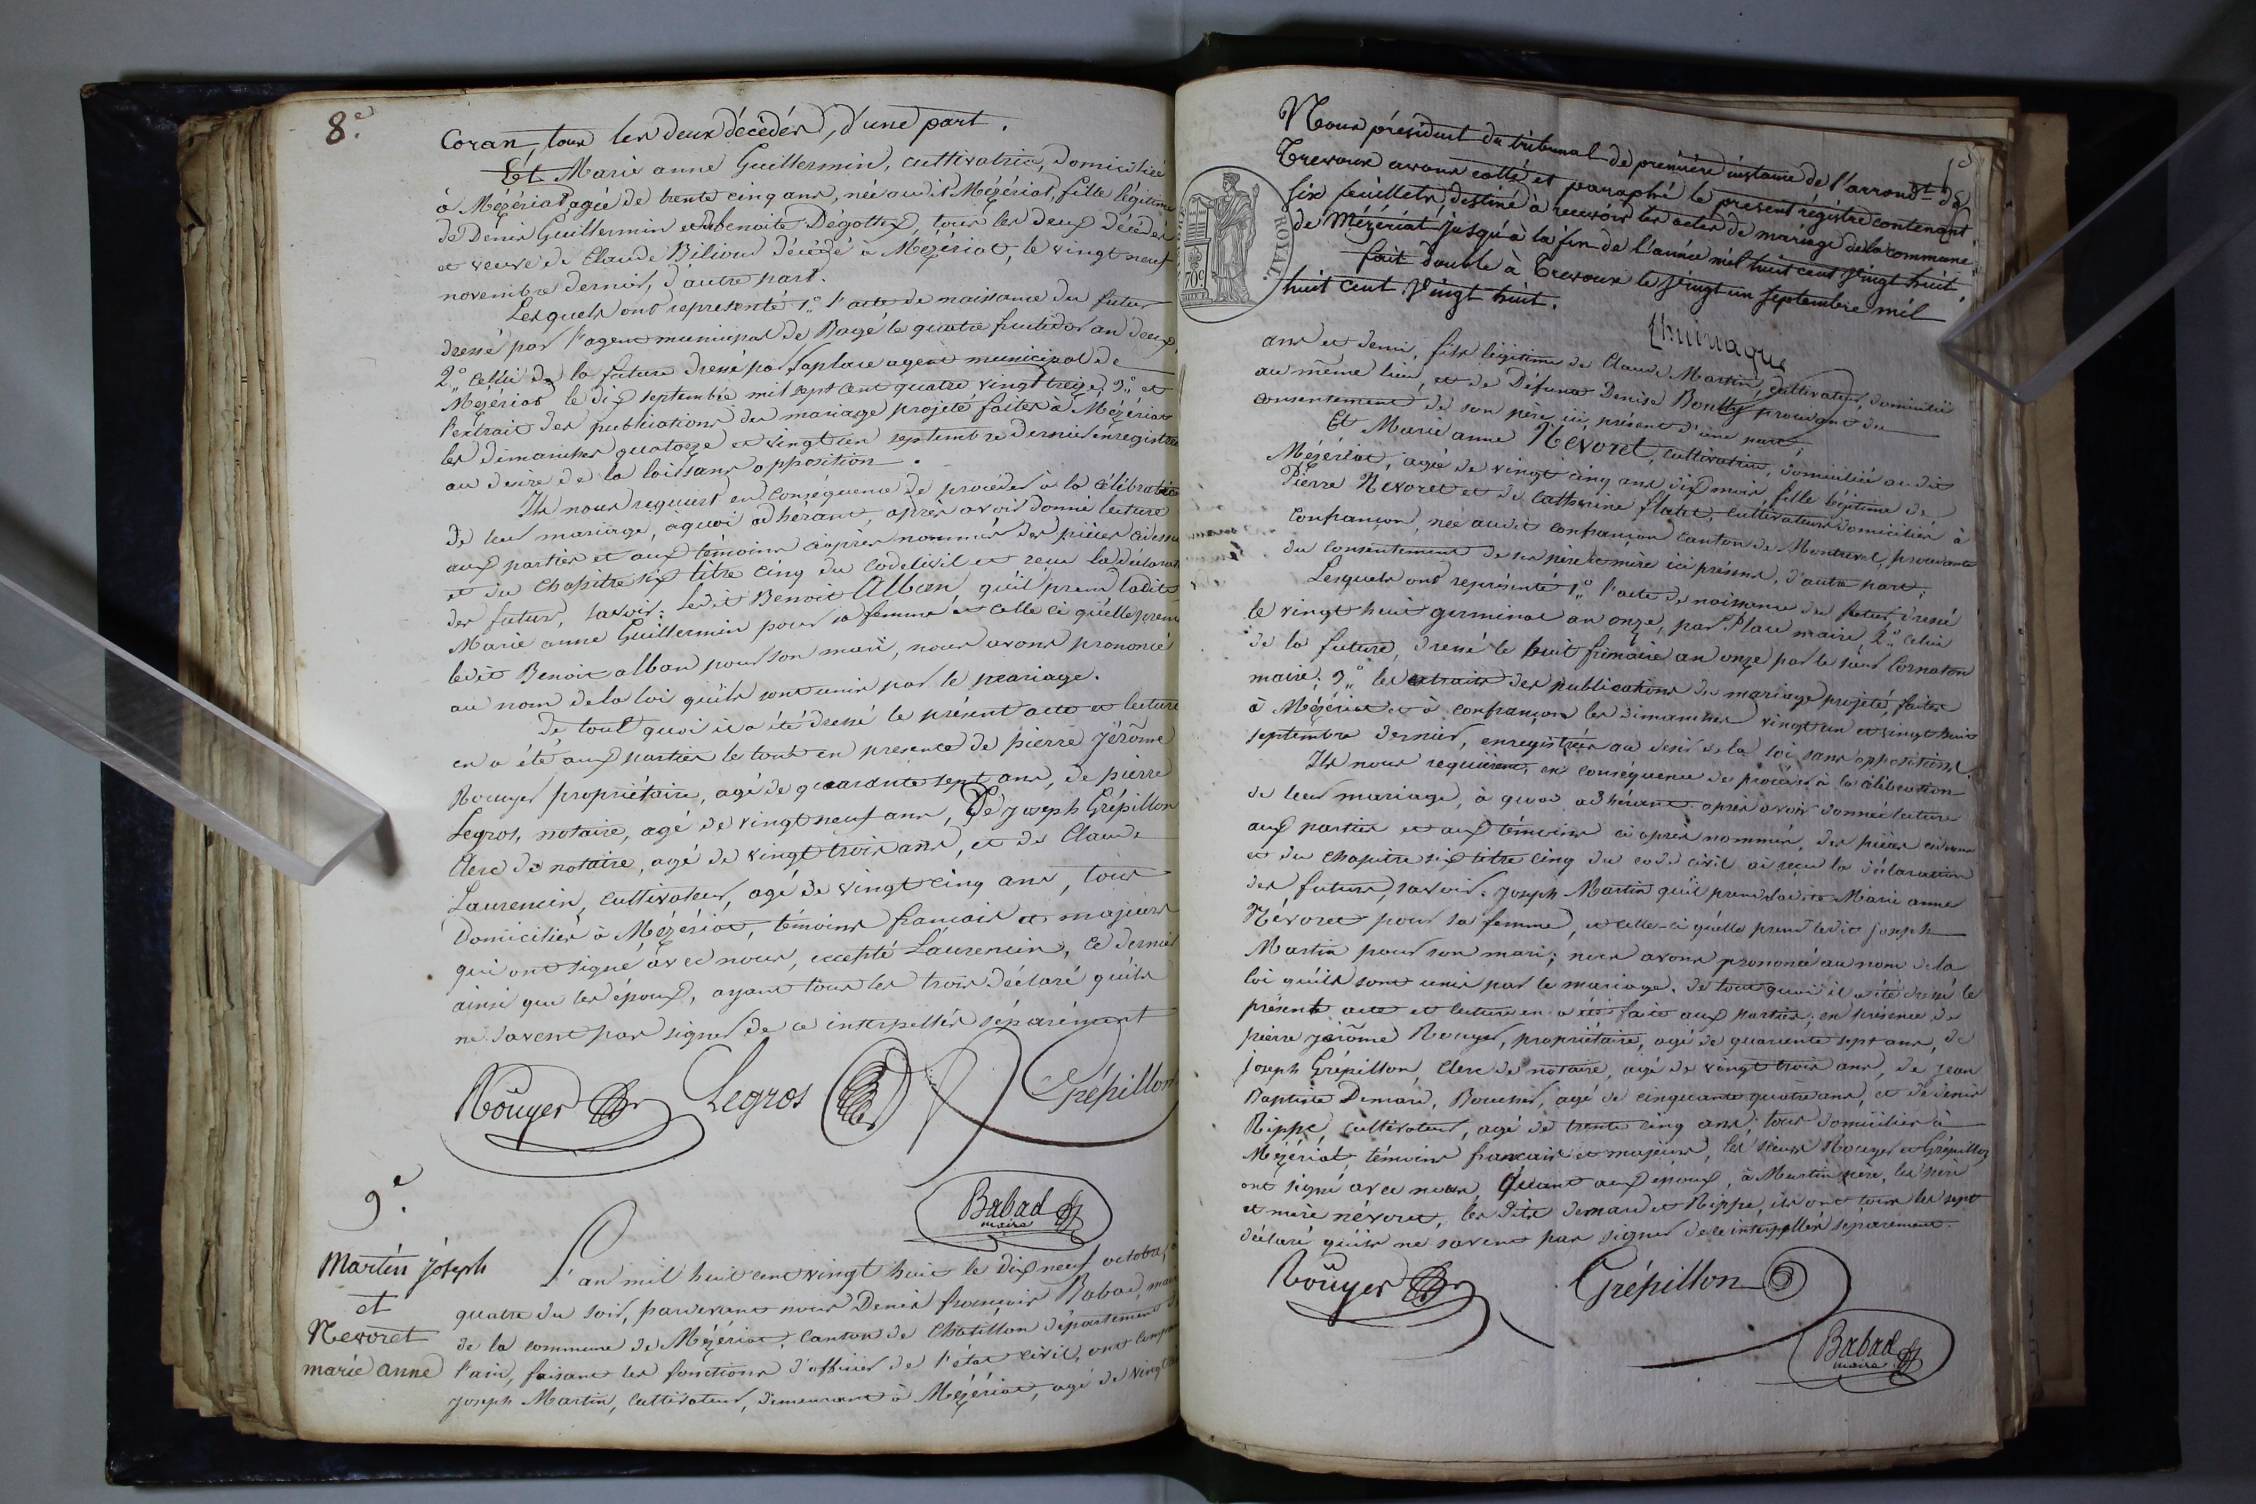 8.e
Coran, tous les deux décédés, d'une part.
Et Marie anne Guillermin, cultivatrice, domiciliée
à Mézériat agée de trente cinq ans, née audit Mézériat, fille légitime
de Denis Guillermin et de benoite Dégottex, tous les deux décédés
et veuve de Claude Biliou décédé à Mézériat, le vingt neuf
novembre dernier, d'autre part.
Lesquels ont représenté 1.o l'acte de naissance du futur
dressé par l'agent municipal de Bagé le quatre fructidor an deux,
2.o celui de la future dressé par Laplace agent municipal de
Mézériat le dix septembre mil sept cent quatre vingt treize, 3.o et
l'extrait des publications du mariage projeté faites à Mézériat
les dimanches quatorze et vingt un septembre dernier enregistrées
au désire de la loi sans opposition.
Ils nous requiert en conséquence de procéder à la célébration
de leur mariage, aquoi adhérant, après avoir donné lecture
aux parties et aux témoins ciaprès nommés des pièces cidessus
et du chapitre six titre cinq du code civil et reçu la déclaration
des futurs, savoir: ledit Benoit Alban, qu'il prend ladite
Marie anne Guillermin pour sa femme et celle ci qu'elle prend
ledit Benoit alban pour son mari, nous avons prononcé
au nom de la loi qu'ils sont unis par le mariage.
De tout quoi il a été dressé le présent acte et lecture
en a été aux parties le tout en presence de pierre Jérôme
Rouyer propriétaire, agé de quarante sept ans, de pierre
Legros, notaire, agé de vingt neuf ans, De Joseph Grépillon
Clerc de notaire, agé de vingt trois ans, et de Claude
Laurencin, cultivateur, agé de vingt cinq ans, tous
domiciliés à Mézériat, témoins français et majeurs
qui ont signé avec nous, excepté Laurencin, ce dernier
ainsi que les époux, ayant tous les trois déclaré qu'ils
ne savent pas signer de ce interpellés séparément
Rouyer Legros Grépillon
Babad
maire
9.e
Martin joseph
et
Nevoret
marie anne
L'an mil huit cent vingt huit le dix neuf octobre, à
quatre du soir, pardevant nous Denis françois Babad, maire
de la commune de Mézériat, canton de Chatillon département de
l'ain, faisant les fonctions d'officier de l'état civil, ont comparu
Joseph Martin, cultivateur, demeurant à Mézériat, agé de vingt
Nous président du tribunal de première instance de l'arrondt. de
Trevoux avons cotté et paraphé le present régistre contenant
six feuillets, destiné à recevoir les actes de mariage de la commune
de Mézériat jusqu'à la fin de l'année mil huit cent vingt huit.
fait double à Trevoux le vingt un septembre mil
huit cent vingt huit.
ROYAL
70c
ans et demi, fils légitime de Claude Martin, cultivateur, domicilié
au même lieu, et de Défunte Denise Bouilly procédant du
consentement de son père ici présent d'une part;
Et Marie anne Nevoret, cultivatrice, domiciliée audit
Mézériat, agée de vingt cinq ans dix mois, fille légitime de
Pierre Nevoret et de Catherine flatet, cultivateurs domiciliés à
Confrançon, née audit confrançon canton de Montrevel, procédante
du consentement de ses père et mère ici présens, d'autre part;
Lesquels ont représenté 1.o l'acte de naissance du futur, dressé
le vingt huit germinal an onze, par Place maire 2.o celui
de la future, dressé le huit frimaire an onze par le sieur Cornaton
maire, 3.o les extraits des publications du mariage projeté, faites
à Mézériat et à confrançon les dimanches vingt un et vingt huit
septembre dernier, enregistrées au désir de la loi sans opposition.
Ils nous requièrent, en conséquence de procéder à la célébration
de leur mariage, à quoi adhérant après avoir donné lecture
aux parties et aux témoins ci après nommés, des pièces cidessus
et du chapitre six titre cinq du code civil ai reçu la déclaration
des futurs, savoir: Joseph Martin qu'il prend ladite Marie anne
Névoret pour sa femme, et celle-ci qu'elle prend ledit joseph
Martin pour son mari; nous avons prononcé au nom de la
loi qu'ils sont unis par le mariage. De tout quoi il a été dressé le
présent acte et lecture en a été faite aux parties; en présence de
pierre jérôme Rouyer, propriétaire, agé de quarante sept ans, de
Joseph Grépillon, Clerc de notaire, agé de vingt trois ans, de Jean
Baptiste Demard, Boucher, agé de cinquante quatre ans, et de denis
Rippe, cultivateur, agé de trente cinq ans; tous domiciliés à
Mézériat, témoins français et majeurs, les sieurs Rouyer et Grépillon
ont signé avec nous, Quant aux époux, à Martin père, les père
et mère névoret, les dits demard et Rippe, ils ont tous les sept
déclaré qu'ils ne savent pas signer de ce interpellés séparément.
Rouyer Grépillon
Babad
maire